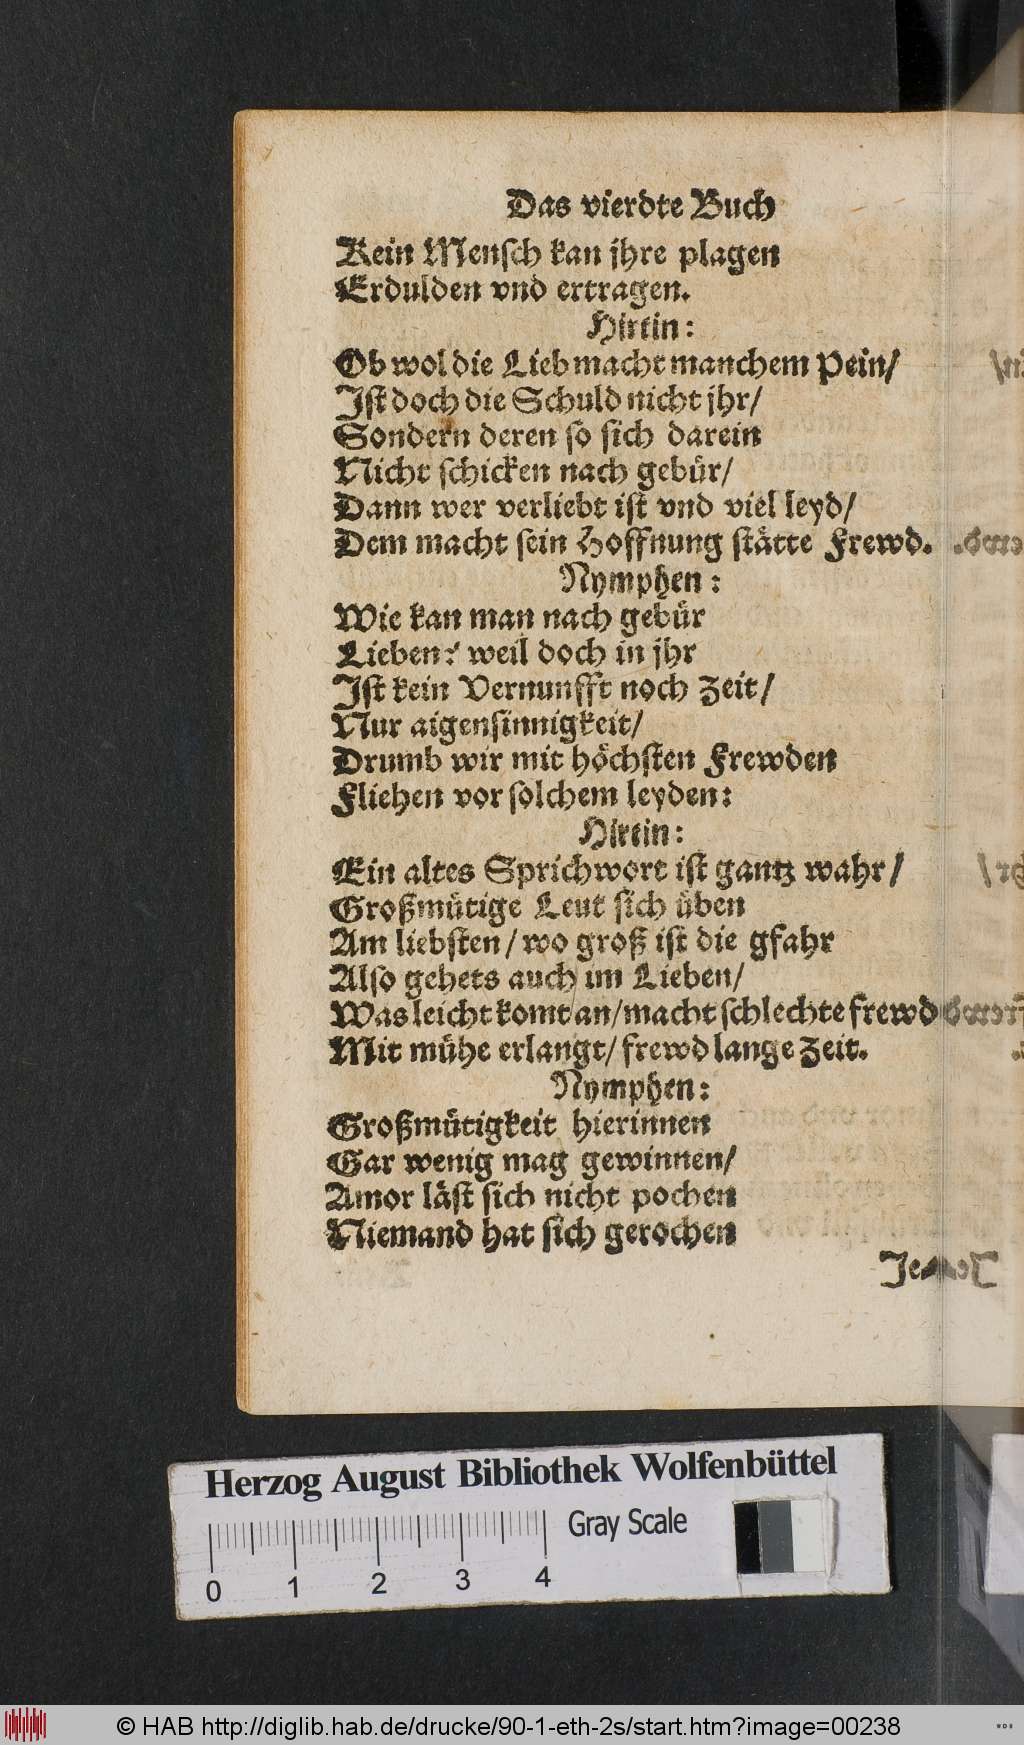 Das vierdte Buch
Kein Mensch kan jhre plagen
Erdulden vnd ertragen.
Hirtin:
Ob wol die Lieb macht manchem Pein/
Jst doch die Schuld nicht jhr/
Sondern deren so sich darein
Nicht schicken nach gebür/
Dann wer verliebt ist vnd viel leyd/
Dem macht sein Hoffnung stätte Frewd.
Nymphen:
Wie kan man nach gebür
Lieben? weil doch in jhr
Jst kein Vernunfft noch Zeit/
Nur aigensinnigkeit/
Drumb wir mit höchsten Frewden
Fliehen vor solchem leyden:
Hirtin:
Ein altes Sprichwort ist gantz wahr/
Großmütige Leut sich üben
Am liebsten/ wo groß ist die gfahr
Also gehets auch im Lieben/
Was leicht komt an/ macht schlechte frewd
Mit mühe erlangt/ frewd lange Zeit.
Nymphen:
Großmütigkeit hierinnen
Gar wenig mag gewinnen/
Amor läst sich nicht pochen
Niemand hat sich gerochen
Herzog August Bibliothek Wolfenbüttel
Gray Scale
0 1 2 3 4
© HAB http://diglib.hab.de/drucke/90-1-eth-2s/start.htm?image=00238